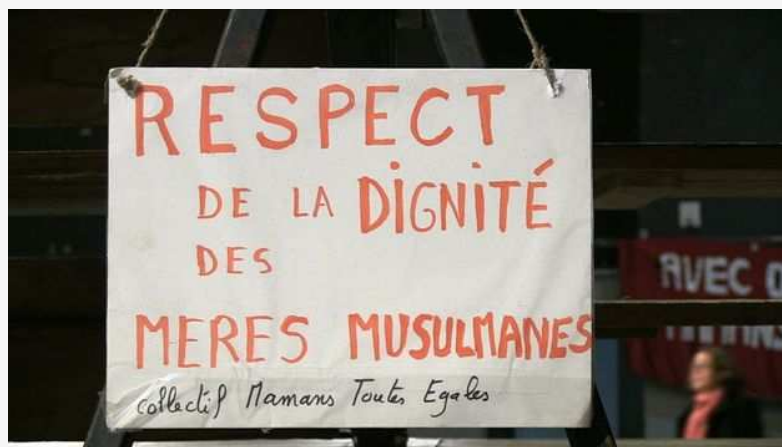 RESPECT
DE LA DIGNITÉ
DES
MERES MUSULMANES
Collectif Mamans Toutes Egales
AVEC